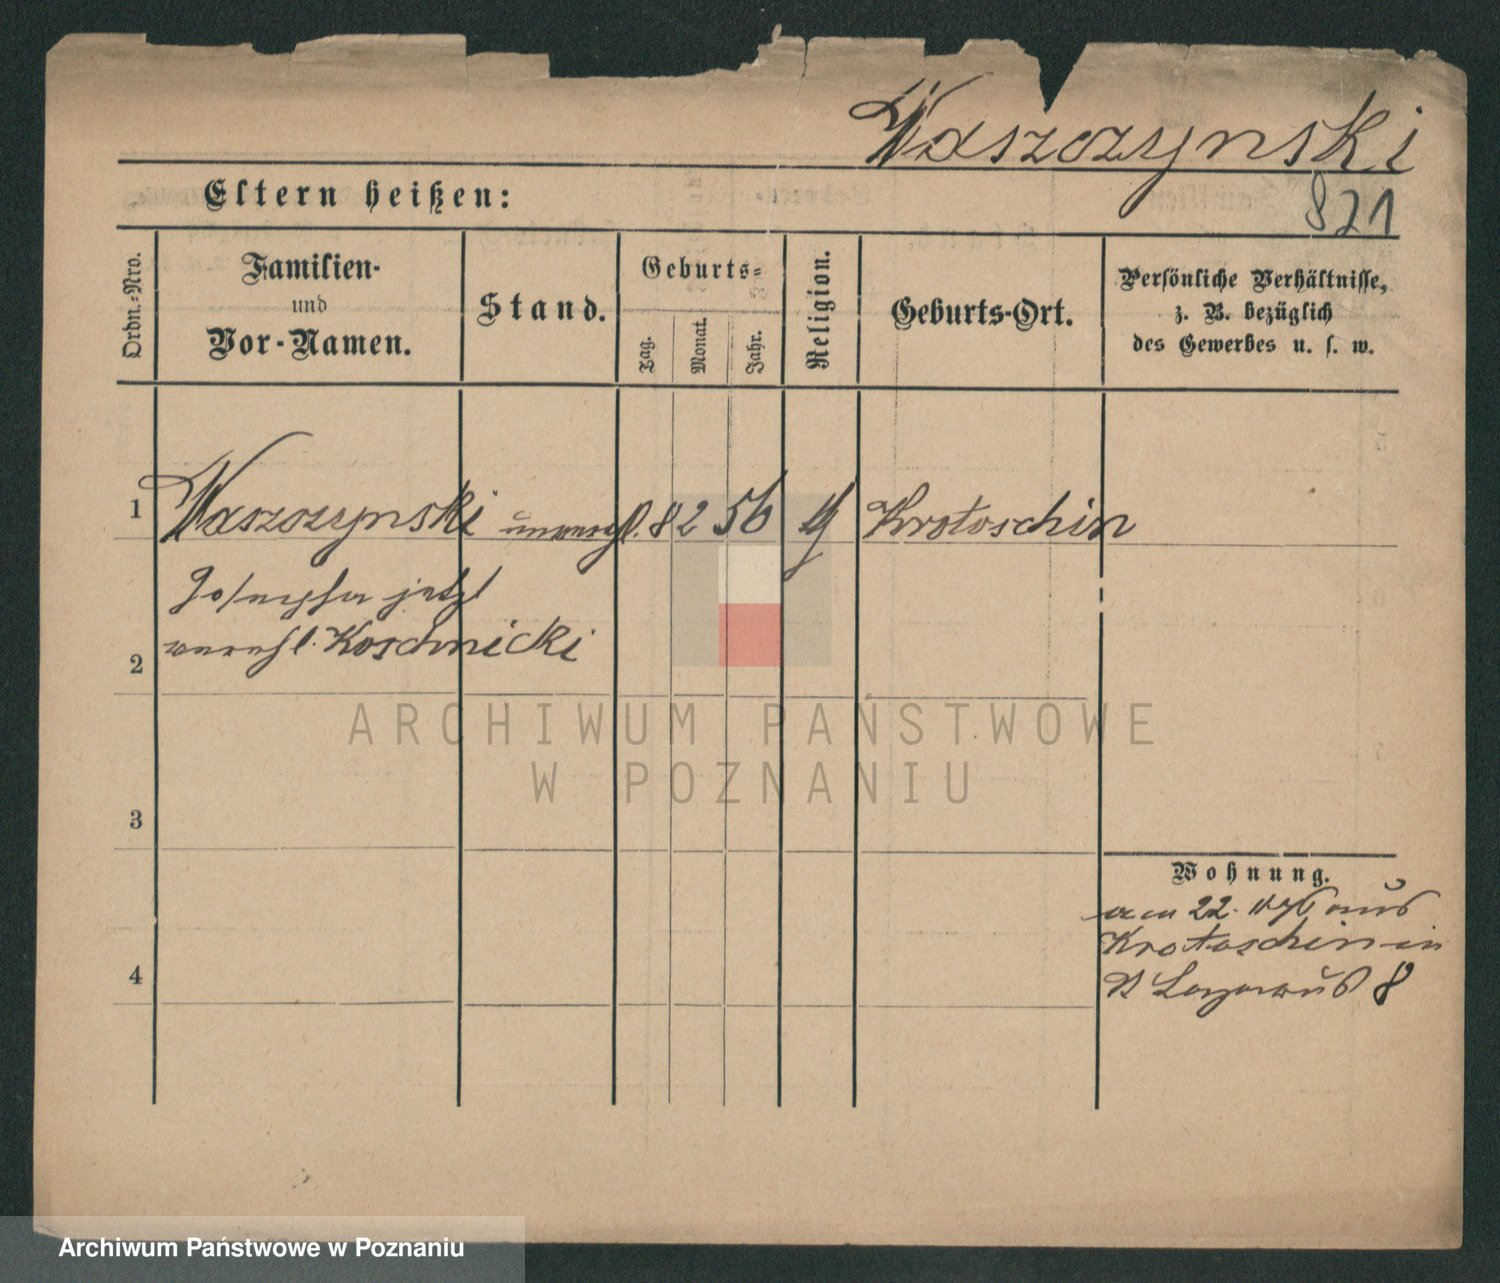 Waszczynski
Eltern heißen:
821
Ordn.-Nro.
Familien-
und
Vor-Namen.
Stand.
Geburts-
Tag.
Monat.
Jahr.
Religion.
Geburts-Ort.
Persönliche Verhältnisse,
z. B. bezüglich
des Gewerbes u. s. w.
1 Waszczynski unverehl. 8 2 56 Krotoschin
Josepha jetzt
verehl. Koschnicki
2
ARCHIWUM PAŃSTWOWE
W POZNANIU
3
Wohnung.
am 22. aus
Krotoschin in
St Lazarus 8
4
Archiwum Państwowe w Poznaniu